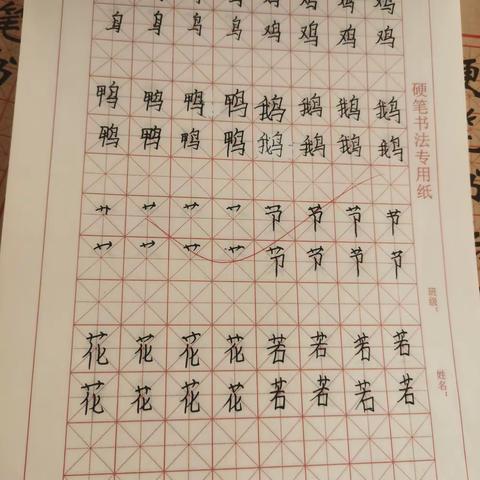 鸡 鸡 鸡 鸡
鸟 鸟 鸟 鸟 鸡 鸡 鸡 鸡
鸭 鸭 鸭 鸭 鹅 鹅 鹅 鹅
鸭 鸭 鸭 鸭 鹅 鹅 鹅 鹅
艹 艹 艹 艹 节 节 节 节
艹 艹 艹 艹 节 节 节 节
花 花 花 花 若 若 若 若
花 花 花 花 若 若 若 若
硬笔书法专用纸
班级：
姓名：